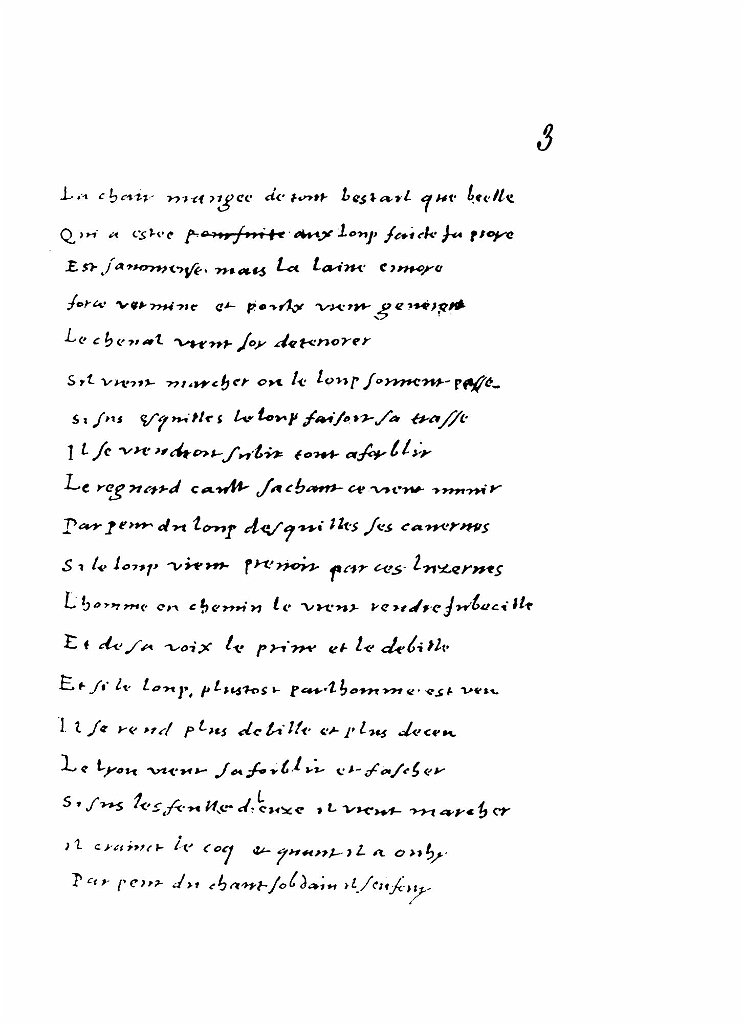 3
La chair mangee de tout bestail que beelle
Qui a estee poursuite aux loup faicte sa proye
Est savoureuse. mais la laine encore
force vermine et poulx vient
Le cheval vient soy
Sil vient marcher ou le loup souvent passe
Si sus esquilles le loup faisoit sa trasse
Il se viendroit subit tout afoblir
Le regnard cault sachant ce vient munir
Par peur du loup desquilles ses cavernes
Si le loup vient prenoir par ces luzernes
Lhomme en chemin le vient rendre imbecille
Et de sa voix le prive et le debille
Et si le loup, plustost par lhomme est veu
Il se rend plus debille et plus deceu
Le lyon vient safoiblir et fascher
Si sus les feulle dieuxe il vient marcher
il crainct le coq et quant il a ouhy
Par peur du chant sobdain il senfuy